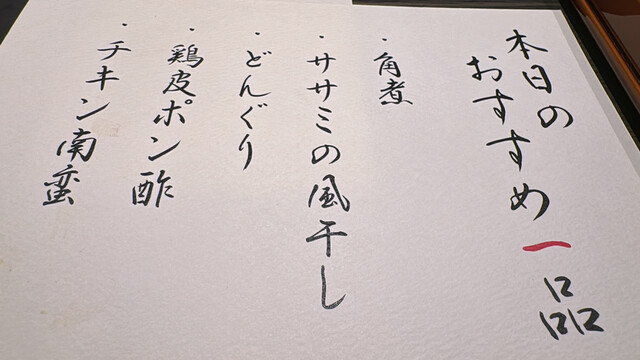 本日の
おすすめ一品
・角煮
・ササミの風干し
・どんぐり
・鶏皮ポン酢
・チキン南蛮